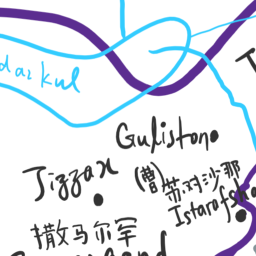 darkul
Guliston
Jizzax
(曹)
带对沙那
Istarafsha
撒马尔罕